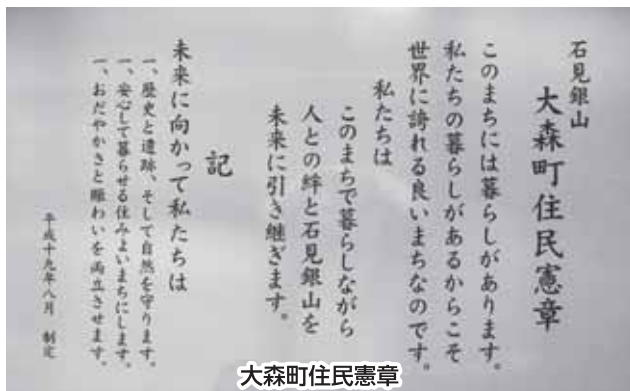 石見銀山
大森町住民憲章
このまちには暮らしがあります。
私たちの暮らしがあるからこそ
世界に誇れる良いまちなのです。
私たちは
このまちで暮らしながら
人との絆と石見銀山を
未来に引き継ぎます。
記
未来に向かって私たちは
一、歴史と遺跡、そして自然を守ります。
一、安心して暮らせる住みよいまちにします。
一、おだやかさと賑わいを両立させます。
平成十九年八月 制定
大森町住民憲章